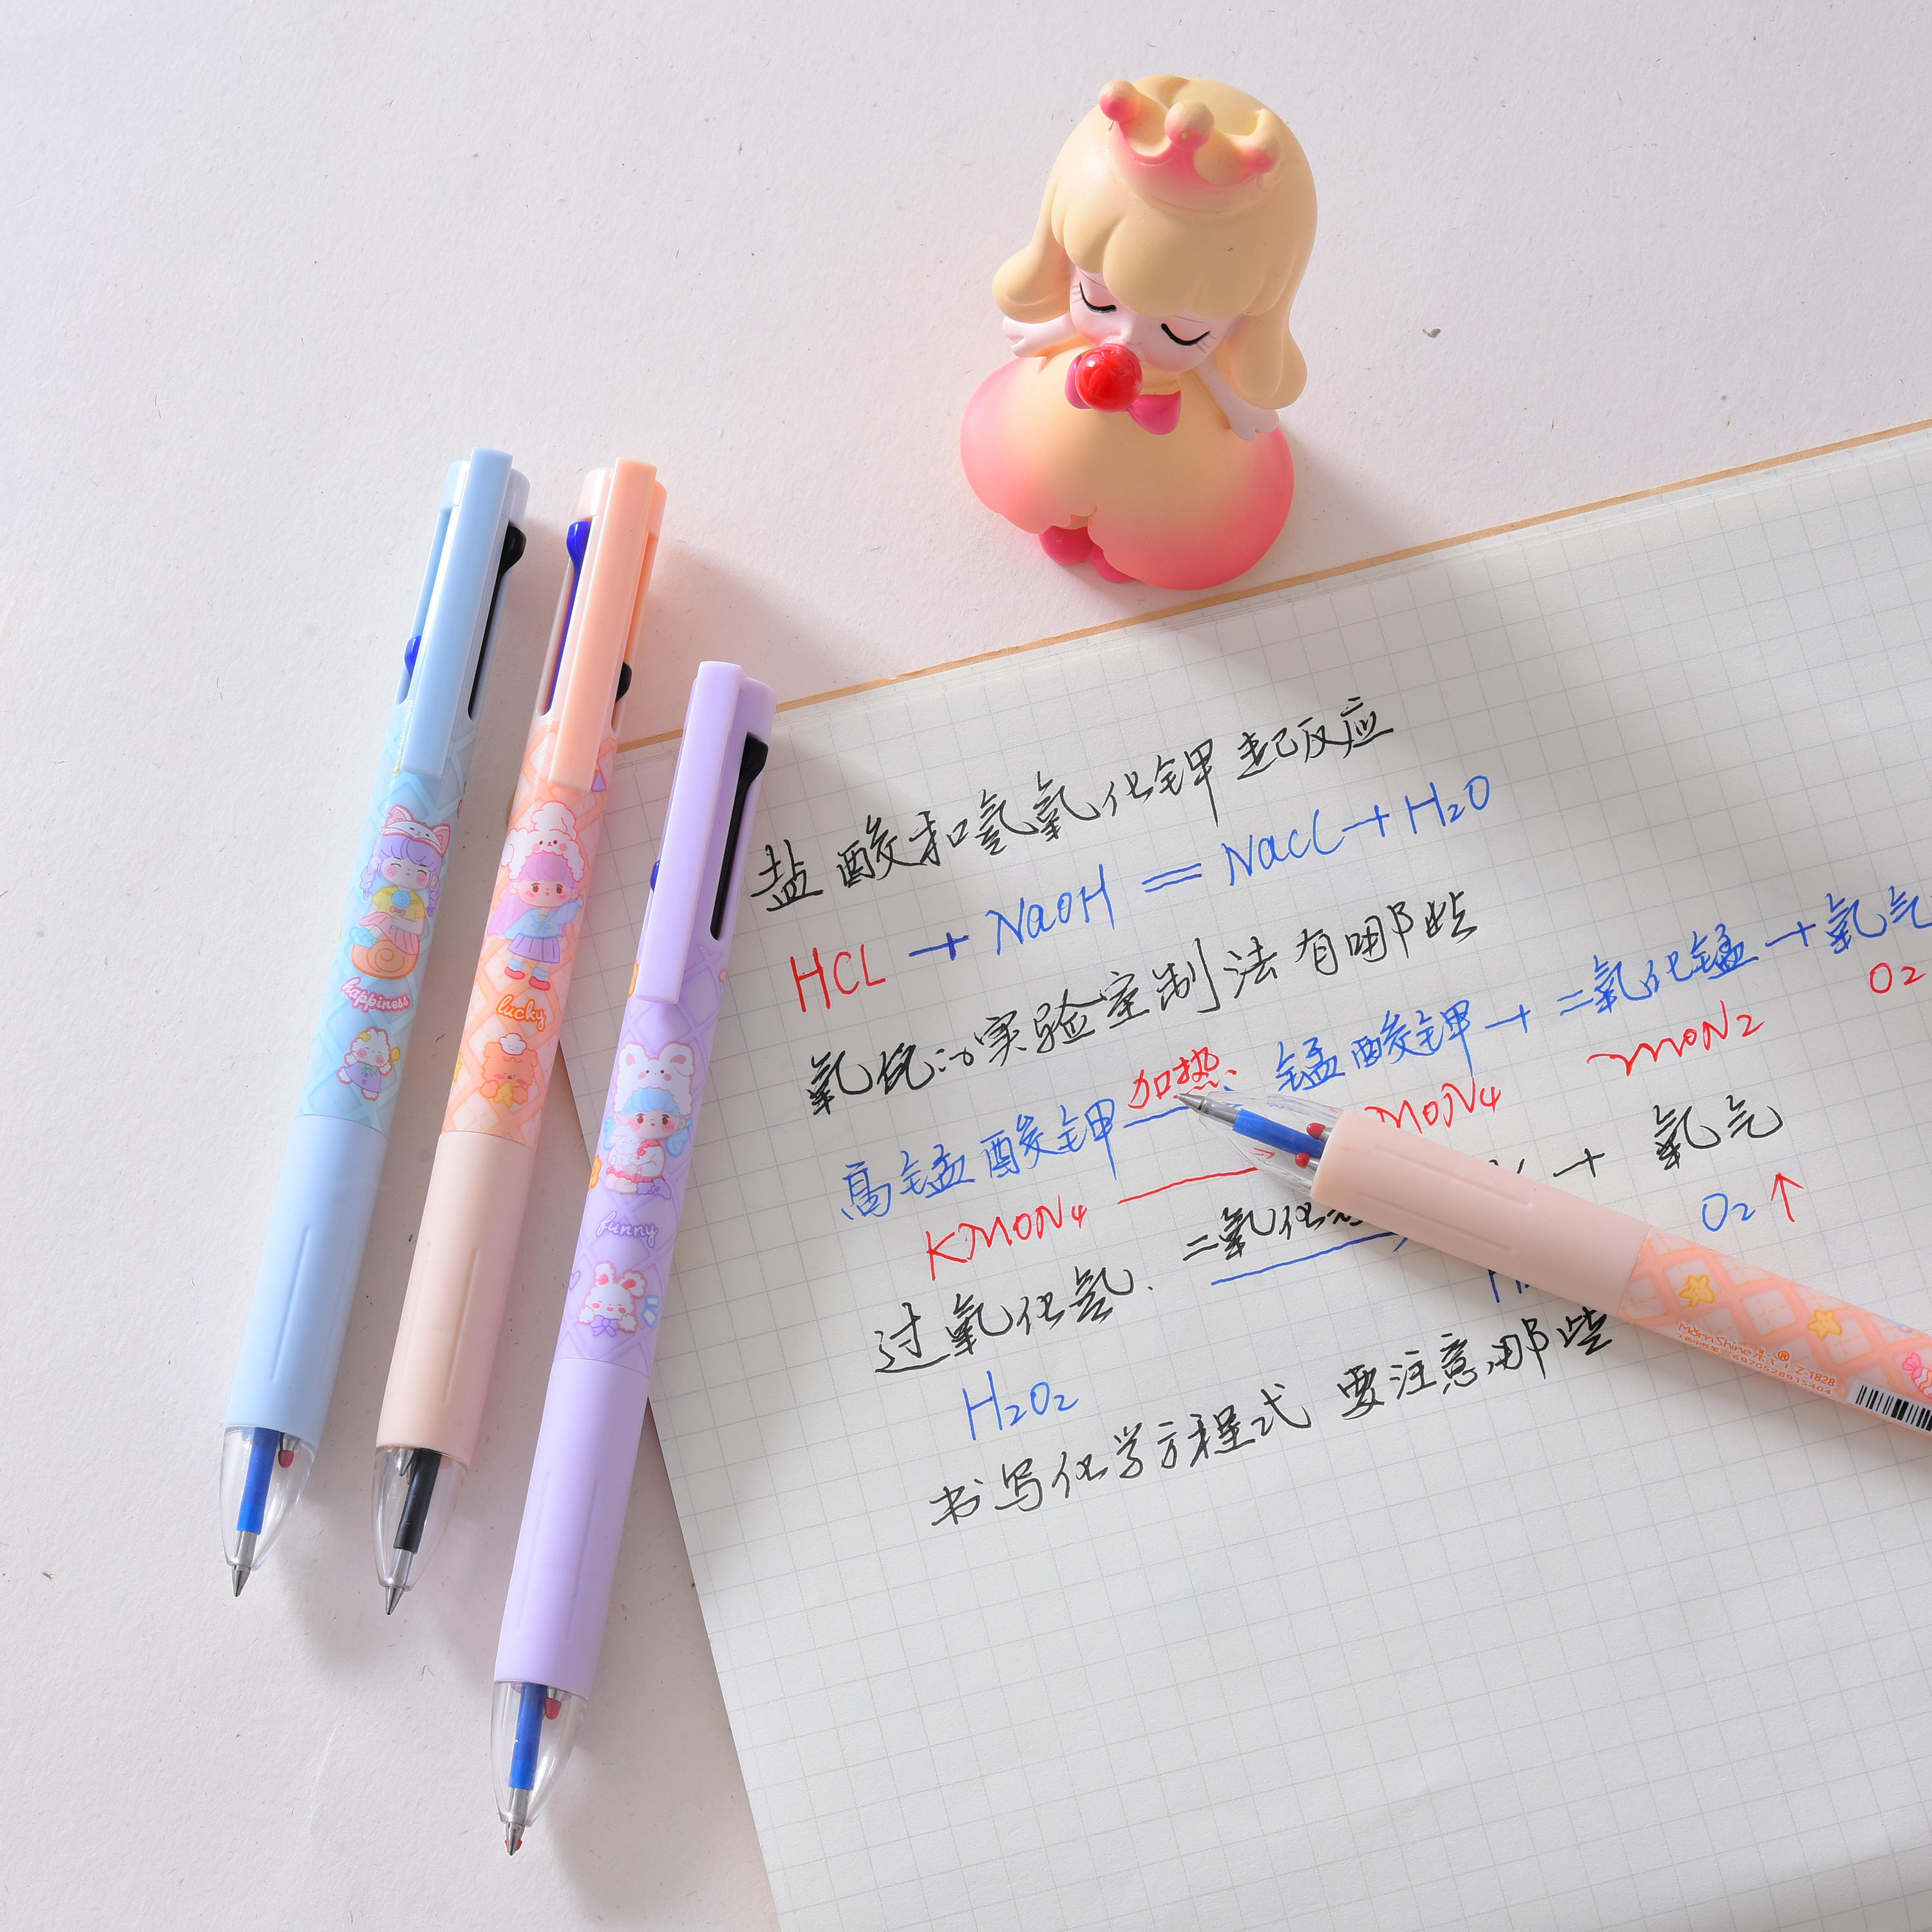 盐酸和氢氧化钾起反应
HCL + NaOH = NaCl + H₂O
氧化的实验室制法有哪些
高锰酸钾 加热 锰酸钾 + 二氧化锰 + 氧气
KMON₄ MON₄ MON₂ O₂
过氧化氢 二氧化 + 氧气
H₂O₂ O₂↑
书写化学方程式 要注意哪些
happiness
lucky
funny
MornShine
Z-1828
6970528915404